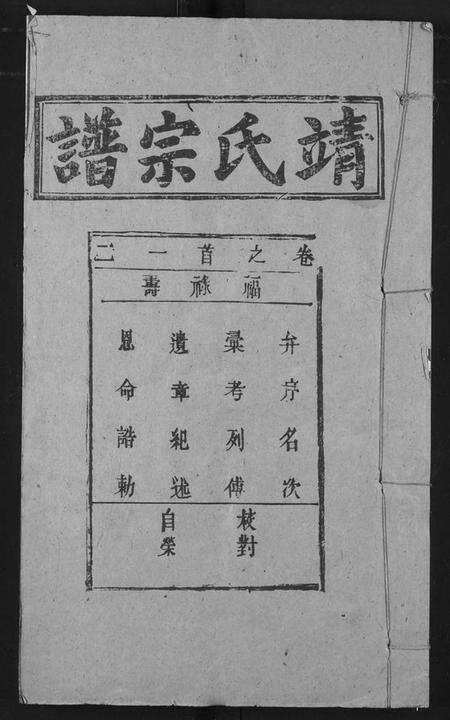 靖氏宗譜
卷之首一二
福祿壽
弁序名次
彙考列傳
遺章紀述
恩命誥勅
校對
自榮